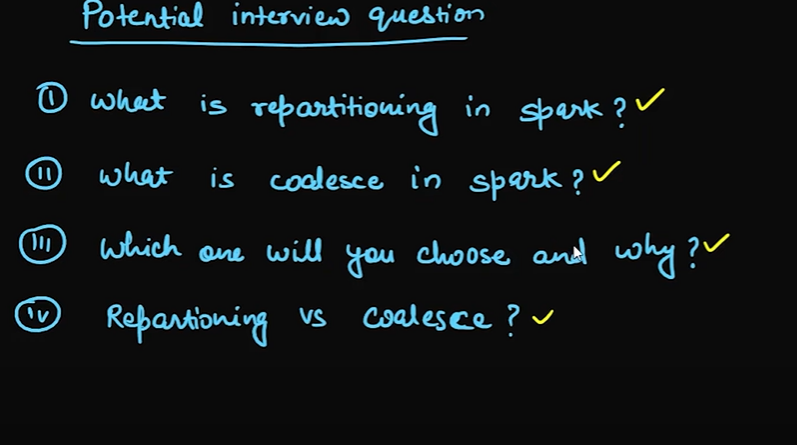 Potential interview question
(i) what is repartitioning in spark?
(ii) what is coalesce in spark?
(iii) which one will you choose and why?
(iv) Repartioning vs coalesce?